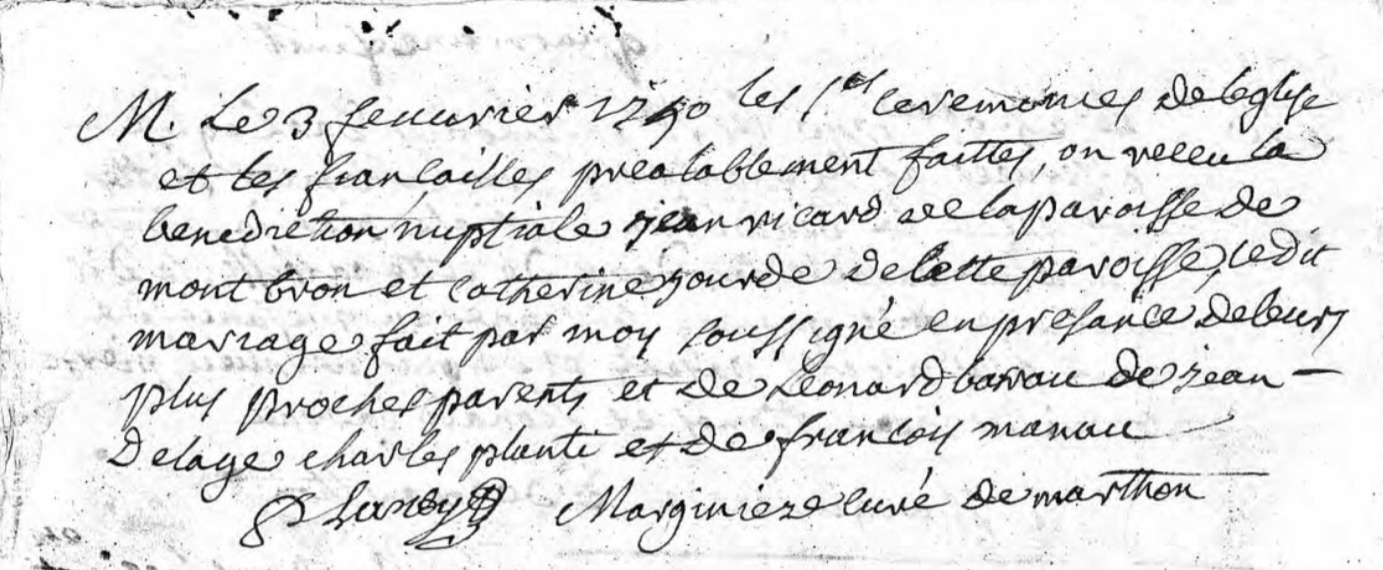 M. Le 3 feuvrier 1740 les Stes ceremonies de leglise
et les fiancailles prealablement faittes, on receu la
benediction nuptiale jean ricard de la paroisse de
montbron et catherine jourde de cette paroisse, ledit
mariage fait par moy soussigné en presance de leurs
plus proches parents et de Leonard barrau de jean
Delage charles planti et de francois manau
Marginiere curé de marthon